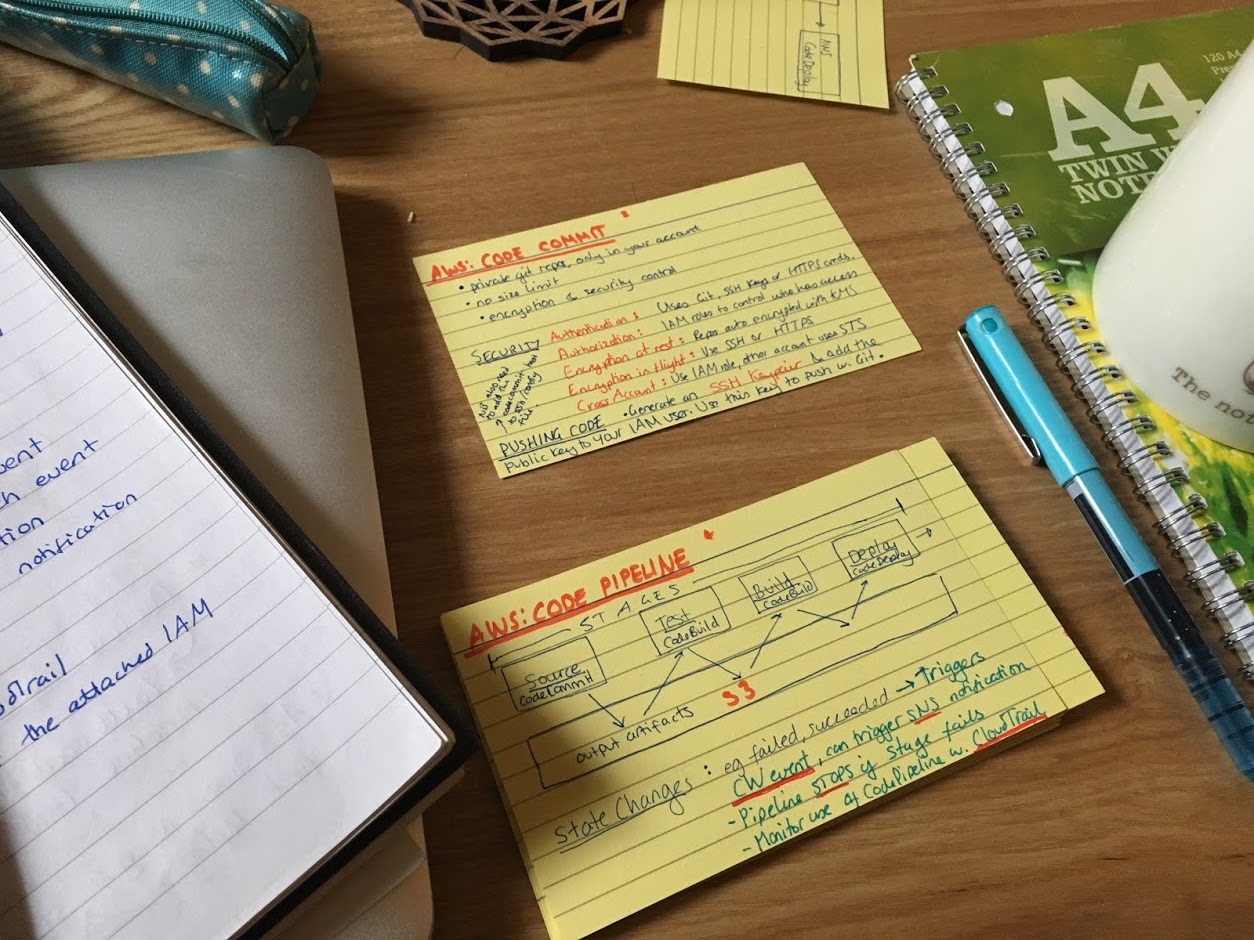 AWS
CodeDeploy
A4
120 A4
TWIN W
NOTE
The not
AWS: CODE COMMIT
• private git repos, only in your account
• no size limit
• encryption & security control
SECURITY
Authentication: Uses Git, SSH Keys or HTTPS creds.
Authorization: IAM roles to control who has access
Encryption at rest: Repos auto encrypted with KMS
Encryption in flight: Use SSH or HTTPS
Cross Account: Use IAM role, other account uses STS
PUSHING CODE • Generate an SSH Keypair & add the
public key to your IAM user. Use this key to push w. Git.
AWS: CODE PIPELINE
STAGES
Source
CodeCommit
Test
CodeBuild
Build
CodeBuild
Deploy
CodeDeploy
output artifacts S3
State Changes: eg failed, succeeded → triggers
CW event, can trigger SNS notification
- Pipeline STOPS if stage fails
- Monitor use of CodePipeline w. CloudTrail
event
notification
the attached IAM